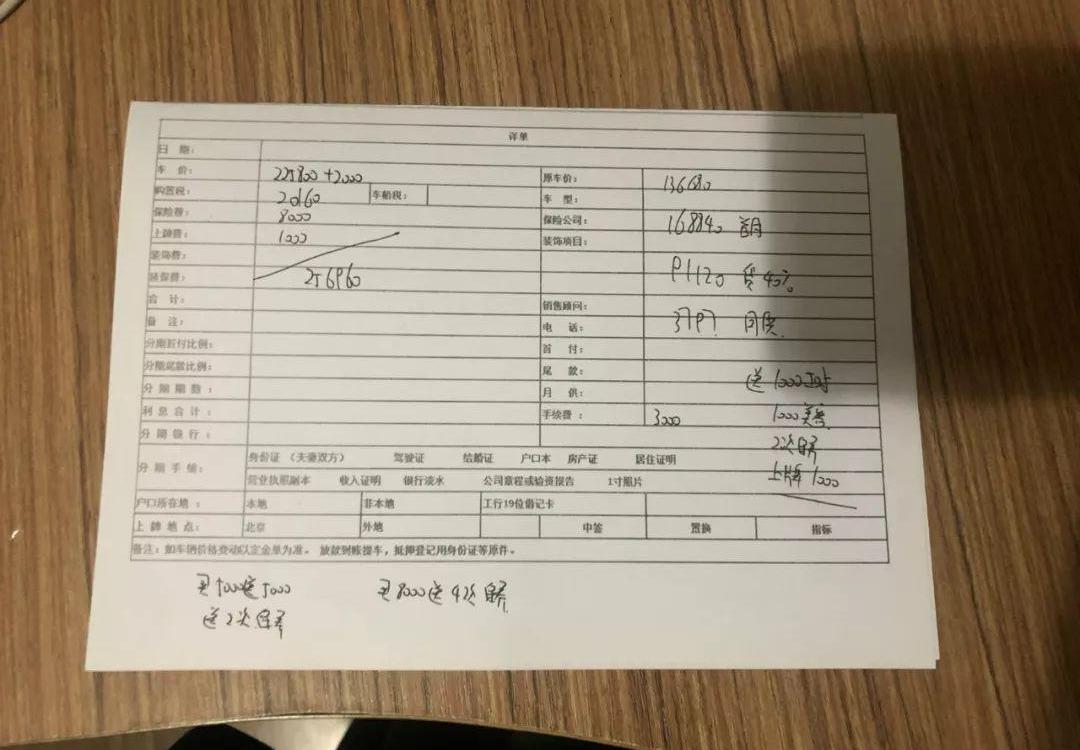 详单
日 期：
车 价： 225800+2000 原车价： 136680
购置税： 20160 车船税： 车 型：
保险费： 8000 保险公司： 168840 首月
上牌费： 1000 装饰项目：
装饰费：
延保费： 256960 91120 贷40%
合 计： 销售顾问：
备 注： 电 话： 3797 月供
分期首付比例： 首 付：
分期尾款比例： 尾 款： 送1000
分 期 期 数： 月 供：
利 息 合 计： 手续费： 3000 1000
分 期 银 行： 2次保养
分 期 手 续： 身份证（夫妻双方） 驾驶证 结婚证 户口本 房产证 居住证明
营业执照副本 收入证明 银行流水 公司章程或验资报告 1寸照片 上牌1000
户口所在地： 本地 非本地 工行19位借记卡
上 牌 地 点： 北京 外地 中签 置换 指标
备注：如车辆价格变动以定金单为准。放款到账提车，抵押登记用身份证等原件。
买5000送5000 买8000送4次保养
送2次保养